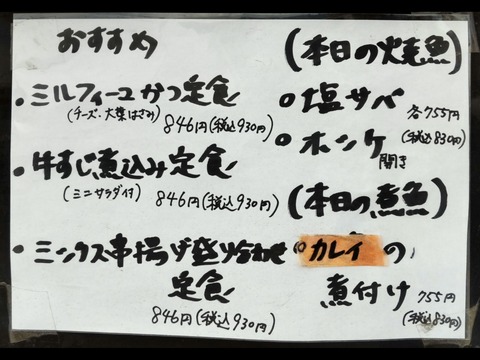 おすすめ
・ミルフィーユかつ定食
(チーズ・大葉はさみ)
846円(税込930円)
・牛すじ煮込み定食
(ミニサラダ付)
846円(税込930円)
・ミックス串揚げ盛り合わせ
定食
846円(税込930円)
(本日の焼魚)
○塩サバ
各755円
(税込830円)
○ホッケ
開き
(本日の煮魚)
○カレイの
煮付け
755円
(税込830円)